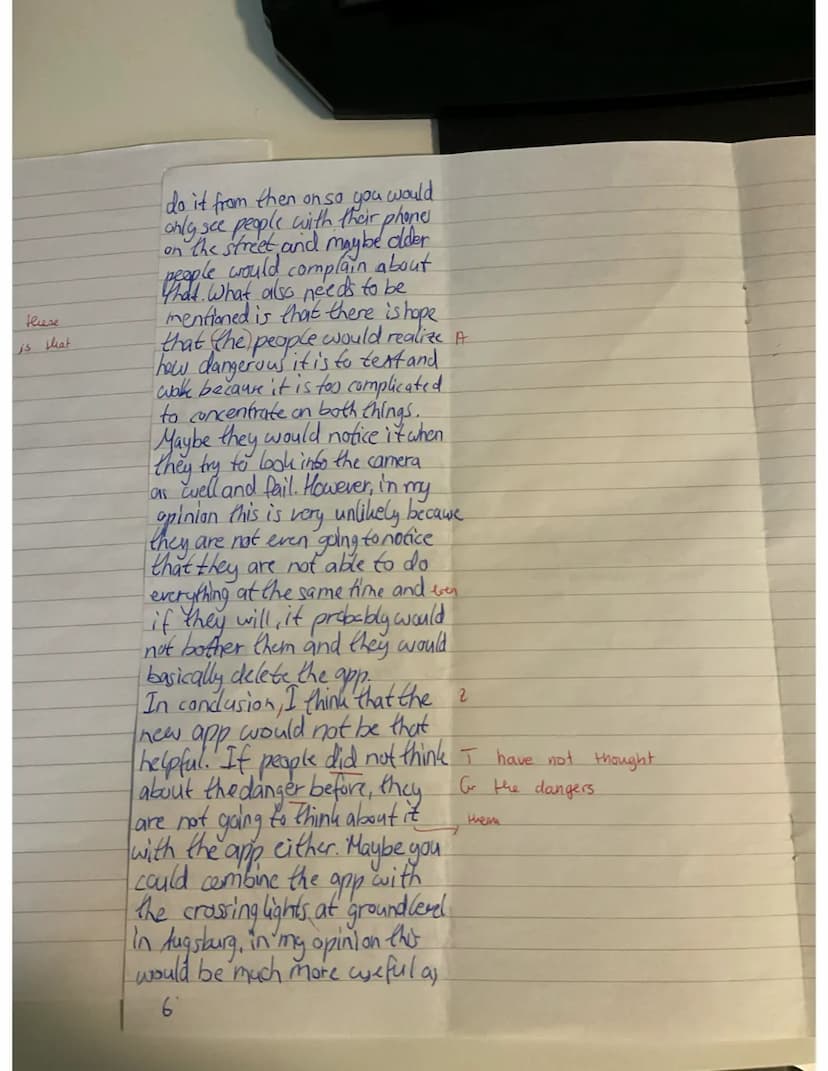 do it from then on so you would
only see people with their phones
on the street and maybe older
people would complain about
that. What also needs to be
these
mentioned is that there is hope
is that
that (the) people would realize A
how dangerous it is to text and
walk because it is too complicated
to concentrate on both things.
Maybe they would notice it when
they try to look into the camera
as well and fail. However, in my
opinion this is very unlikely because
they are not even going to notice
that they are not able to do
everything at the same time and even
if they will, it probably would
not bother them and they would
basically delete the app.
In conclusion, I think that the 2
new app would not be that
helpful. If people did not think T have not thought
about the danger before, they Gr the dangers
are not going to think about it them
with the app either. Maybe you
could combine the app with
the crossing lights at ground level
in Augsburg, in my opinion this
would be much more useful as
6